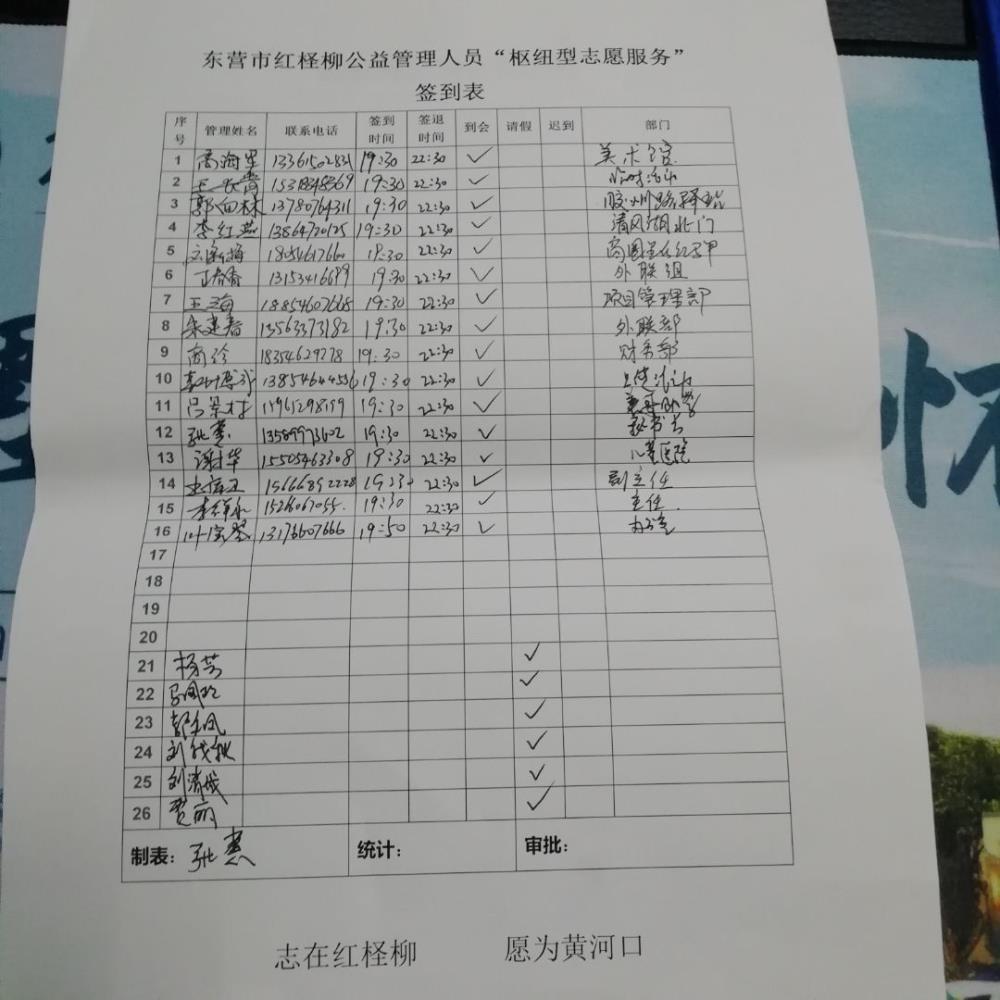 东营市红柽柳公益管理人员“枢纽型志愿服务”
签到表
序号 管理姓名 联系电话 签到时间 签退时间 到会 请假 迟到 部门
1 商海星 13361502831 19:30 22:30 ✓ 美术馆
2 王长青 15318348369 19:30 22:30 ✓ 临时活动
3 郭向林 13780764311 19:30 22:30 ✓ 胶州路驿站
4 李红燕 13864770125 19:30 22:30 ✓ 清风湖北门
5 18054617660 19:30 22:30 ✓
6 丁春香 13153416699 19:30 22:30 ✓ 外联组
7 王海 18854607668 19:30 22:30 ✓ 项目管理部
8 朱建春 13563373182 19:30 22:30 ✓ 外联部
9 商玲 18354629278 19:30 22:30 ✓ 财务部
10 13854644556 19:30 22:30 ✓
11 吕荣村 19:30 22:30 ✓
12 张惠 13589973602 19:30 22:30 ✓ 秘书长
13 谢华 15505463308 19:30 22:30 ✓ 儿童医院
14 15666892228 19:30 22:30 ✓ 副主任
15 15266067055 19:30 22:30 ✓ 主任
16 叶宝琴 13176607666 19:50 22:30 ✓ 办公室
17
18
19
20
21 杨芳 ✓
22 马凤玲 ✓
23 郭秀凤 ✓
24 ✓
25 刘清成 ✓
26 贾丽 ✓
制表: 张惠 统计: 审批:
志在红柽柳 愿为黄河口